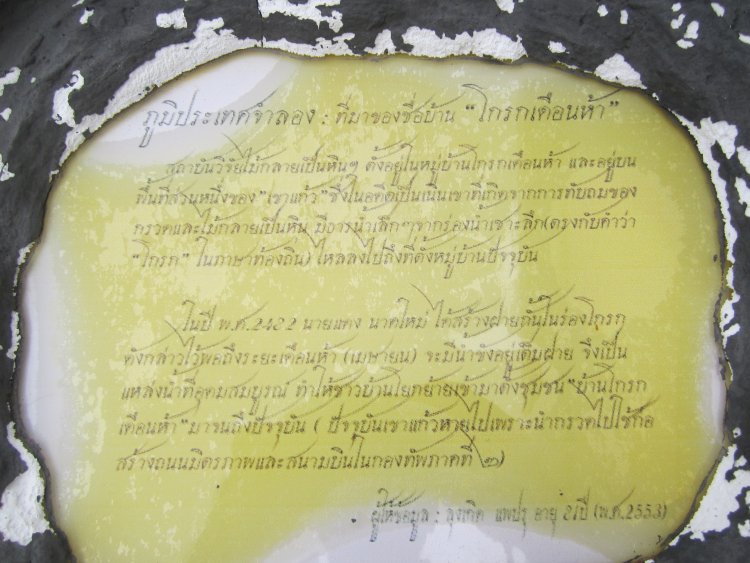 ภูมิประเทศจำลอง : ที่มาของชื่อบ้าน "โกรกเดือนห้า"
สถาบันวิจัยไม้กลายเป็นหินฯ ตั้งอยู่ในหมู่บ้านโกรกเดือนห้า และอยู่บน
พื้นที่ส่วนหนึ่งของ "เขาแก้ว" ซึ่งในอดีตเป็นเนินเขาที่เกิดจากการทับถมของ
กรวดและไม้กลายเป็นหิน มีธารน้ำเล็กๆจากร่องน้ำเซาะลึก(ตรงกับคำว่า
"โกรก" ในภาษาท้องถิ่น) ไหลลงไปถึงที่ตั้งหมู่บ้านปัจจุบัน
ในปี พ.ศ.2482 นายแดง นาดใหม่ ได้สร้างฝายกั้นในร่องโกรก
ดังกล่าวไว้พอถึงระยะเดือนห้า (เมษายน) จะมีน้ำขังอยู่เต็มฝาย จึงเป็น
แหล่งน้ำที่อุดมสมบูรณ์ ทำให้ชาวบ้านโยกย้ายเข้ามาตั้งชุมชน "บ้านโกรก
เดือนห้า" มาจนถึงปัจจุบัน ( ปัจจุบันเขาแก้วหายไปเพราะนำกรวดไปใช้ก่อ
สร้างถนนมิตรภาพและสนามบินในกองทัพภาคที่ ๒)
ผู้ให้ข้อมูล : ลุงเทิด แพปรุ อายุ ปี (พ.ศ.2553)